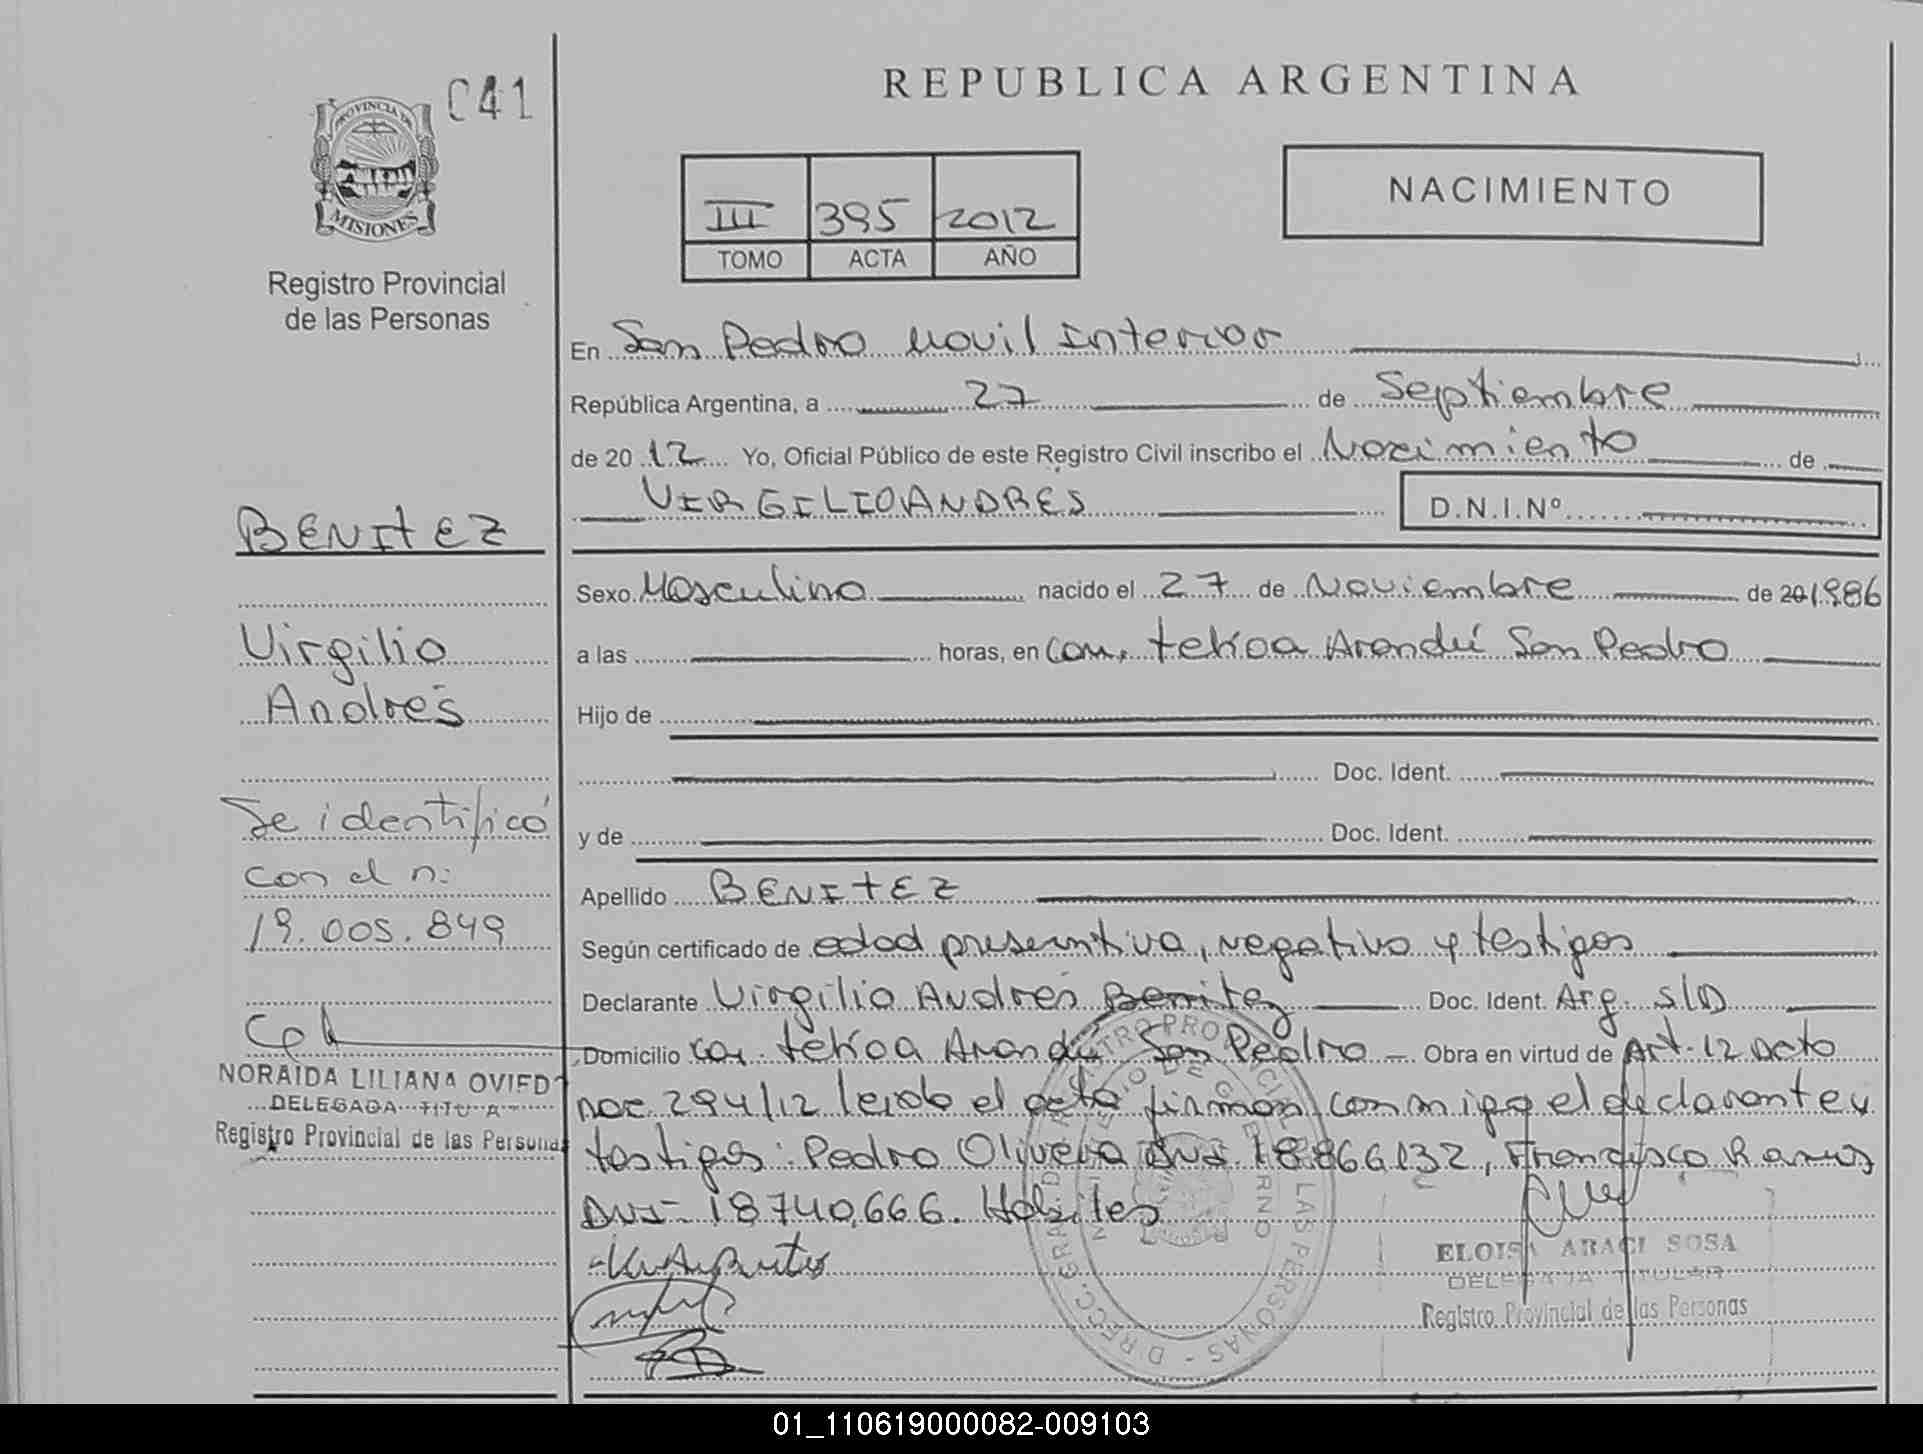 041
PROVINCIA DE
MISIONES
Registro Provincial
de las Personas
REPUBLICA ARGENTINA
III 395 2012
TOMO ACTA AÑO
NACIMIENTO
En San Pedro Movil Interior
República Argentina, a 27 de Septiembre
de 2012 Yo, Oficial Público de este Registro Civil inscribo el Nacimiento de
VIRGILIO ANDRÉS D.N.I.Nº
Sexo Masculino nacido el 27 de Noviembre de 20 1986
a las horas, en Com. tekoa Arandú San Pedro
Hijo de
Doc. Ident.
y de Doc. Ident.
Apellido BENITEZ
Según certificado de edad presuntiva, negativo y testigos
Declarante Virgilio Andrés Benitez Doc. Ident. Arg. S/D
Domicilio Co. tekoa Arandú San Pedro Obra en virtud de Art. 12 Dcto
Nac 294/12 leido el acta firman conmigo el declarante y
testigos: Pedro Olivera DNI 18.866.132, Francisco Ramos
DNI- 18.740.666. Habiles
ELOISA ARACI SOSA
DELEGADA TITULAR
Registro Provincial de las Personas
BENITEZ
Virgilio
Andrés
Se identificó
con el n:
19.005.849
NORAIDA LILIANA OVIEDO
DELEGADA TITULAR
Registro Provincial de las Personas
01_110619000082-009103